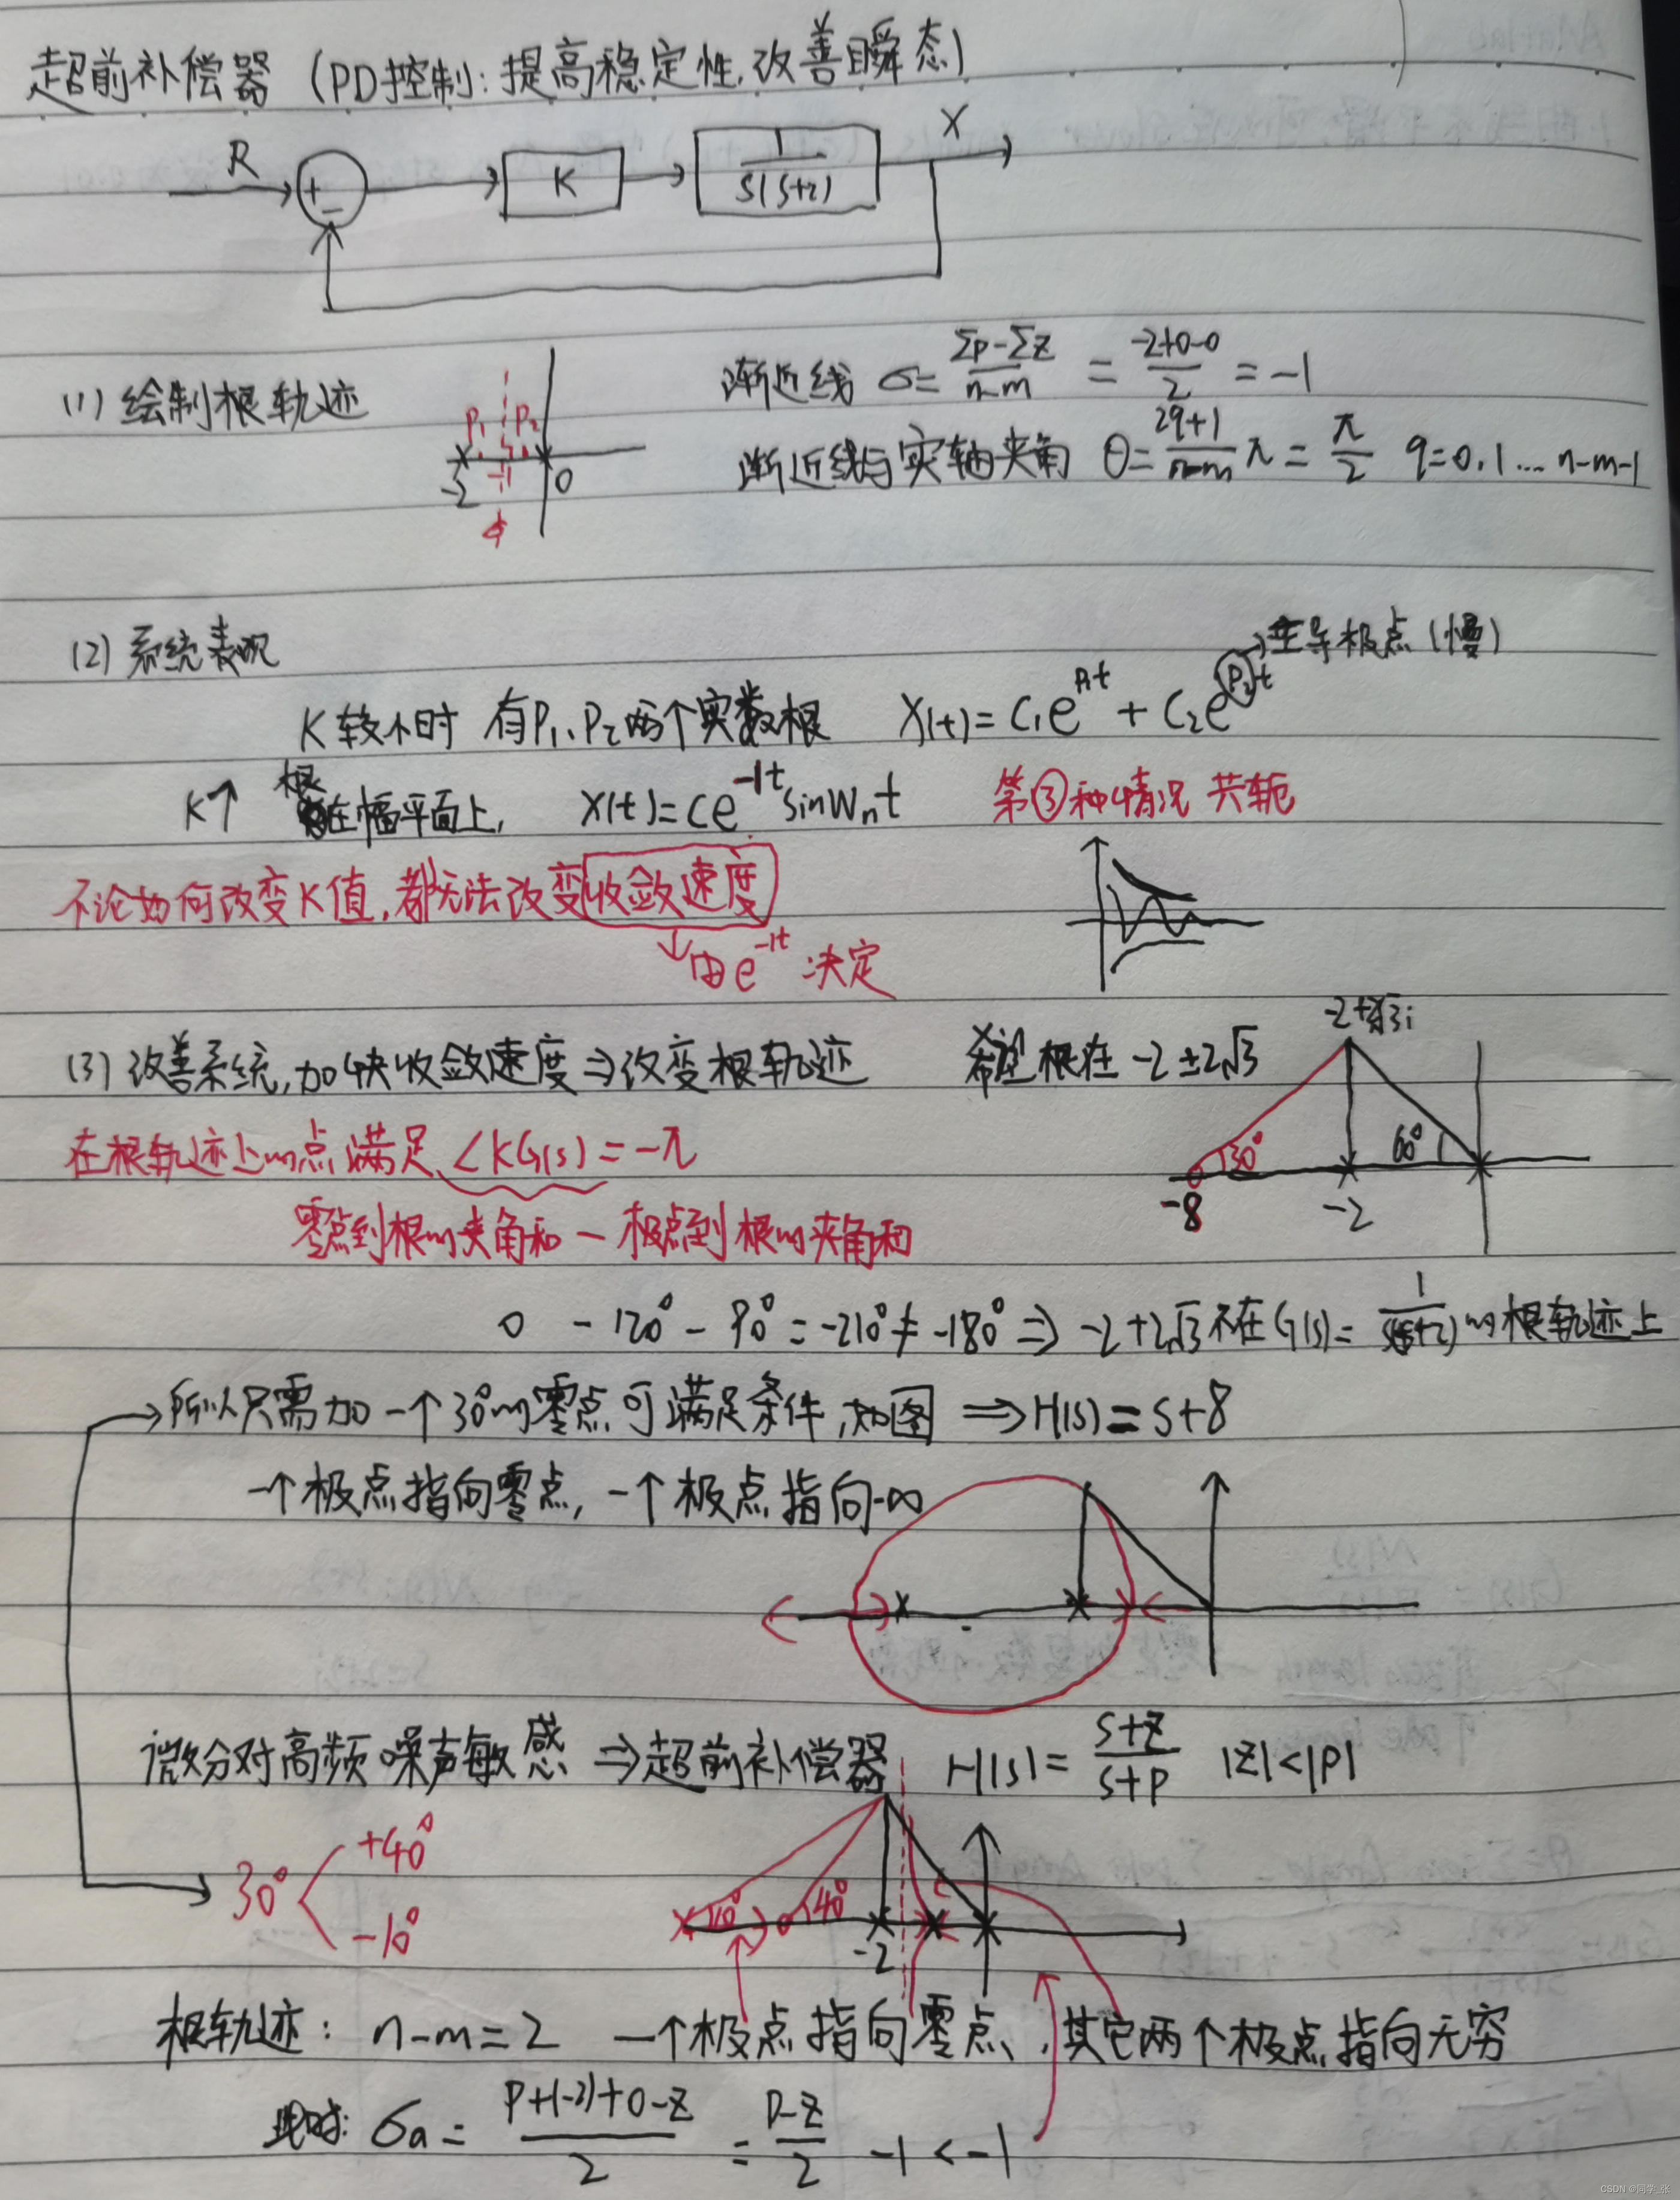 超前补偿器 (PD控制: 提高稳定性, 改善瞬态)
R + − K 1/S(S+2) X
(1) 绘制根轨迹 渐近线 σ = (Σp−Σz)/(n−m) = (−2+0−0)/2 = −1
P₁ P₂ −2 −1 0
渐近线与实轴夹角 θ = (2q+1)/(n−m) π = π/2 q=0,1… n−m−1
(2) 系统表现 主导极点(慢)
K较小时 有P₁、P₂两个实数根 X(t) = C₁e^{P₁t} + C₂e^{P₂t}
K↑ 根在幅平面上, X(t) = Ce^{−1t} sinWₙt 第③种情况 共轭
不论如何改变K值, 都无法改变收敛速度
↓由e^{−1t}决定
(3) 改善系统, 加快收敛速度 ⇒ 改变根轨迹 希望根在 −2±2√3
−2+2√3i
30° 60°
−8 −2
在根轨迹上的点满足 ∠KG(s) = −π
零点到根的夹角和 − 极点到根的夹角和
0 −120° − 90° = −210° ≠ −180° ⇒ −2+2√3不在G(s) = 1/s(s+2)的根轨迹上
→所以只需加一个30°的零点可满足条件, 如图 ⇒ H(s) = s+8
一个极点指向零点, 一个极点指向−∞
微分对高频噪声敏感 ⇒ 超前补偿器 H(s) = (s+z)/(s+p) |z|<|p|
30° +40° −10°
10° 40° −2
根轨迹: n−m=2 一个极点指向零点, 其它两个极点指向无穷
此时: σa = (P+(−2)+0−z)/2 = (P−z)/2 −1 < −1
CSDN @同学_张